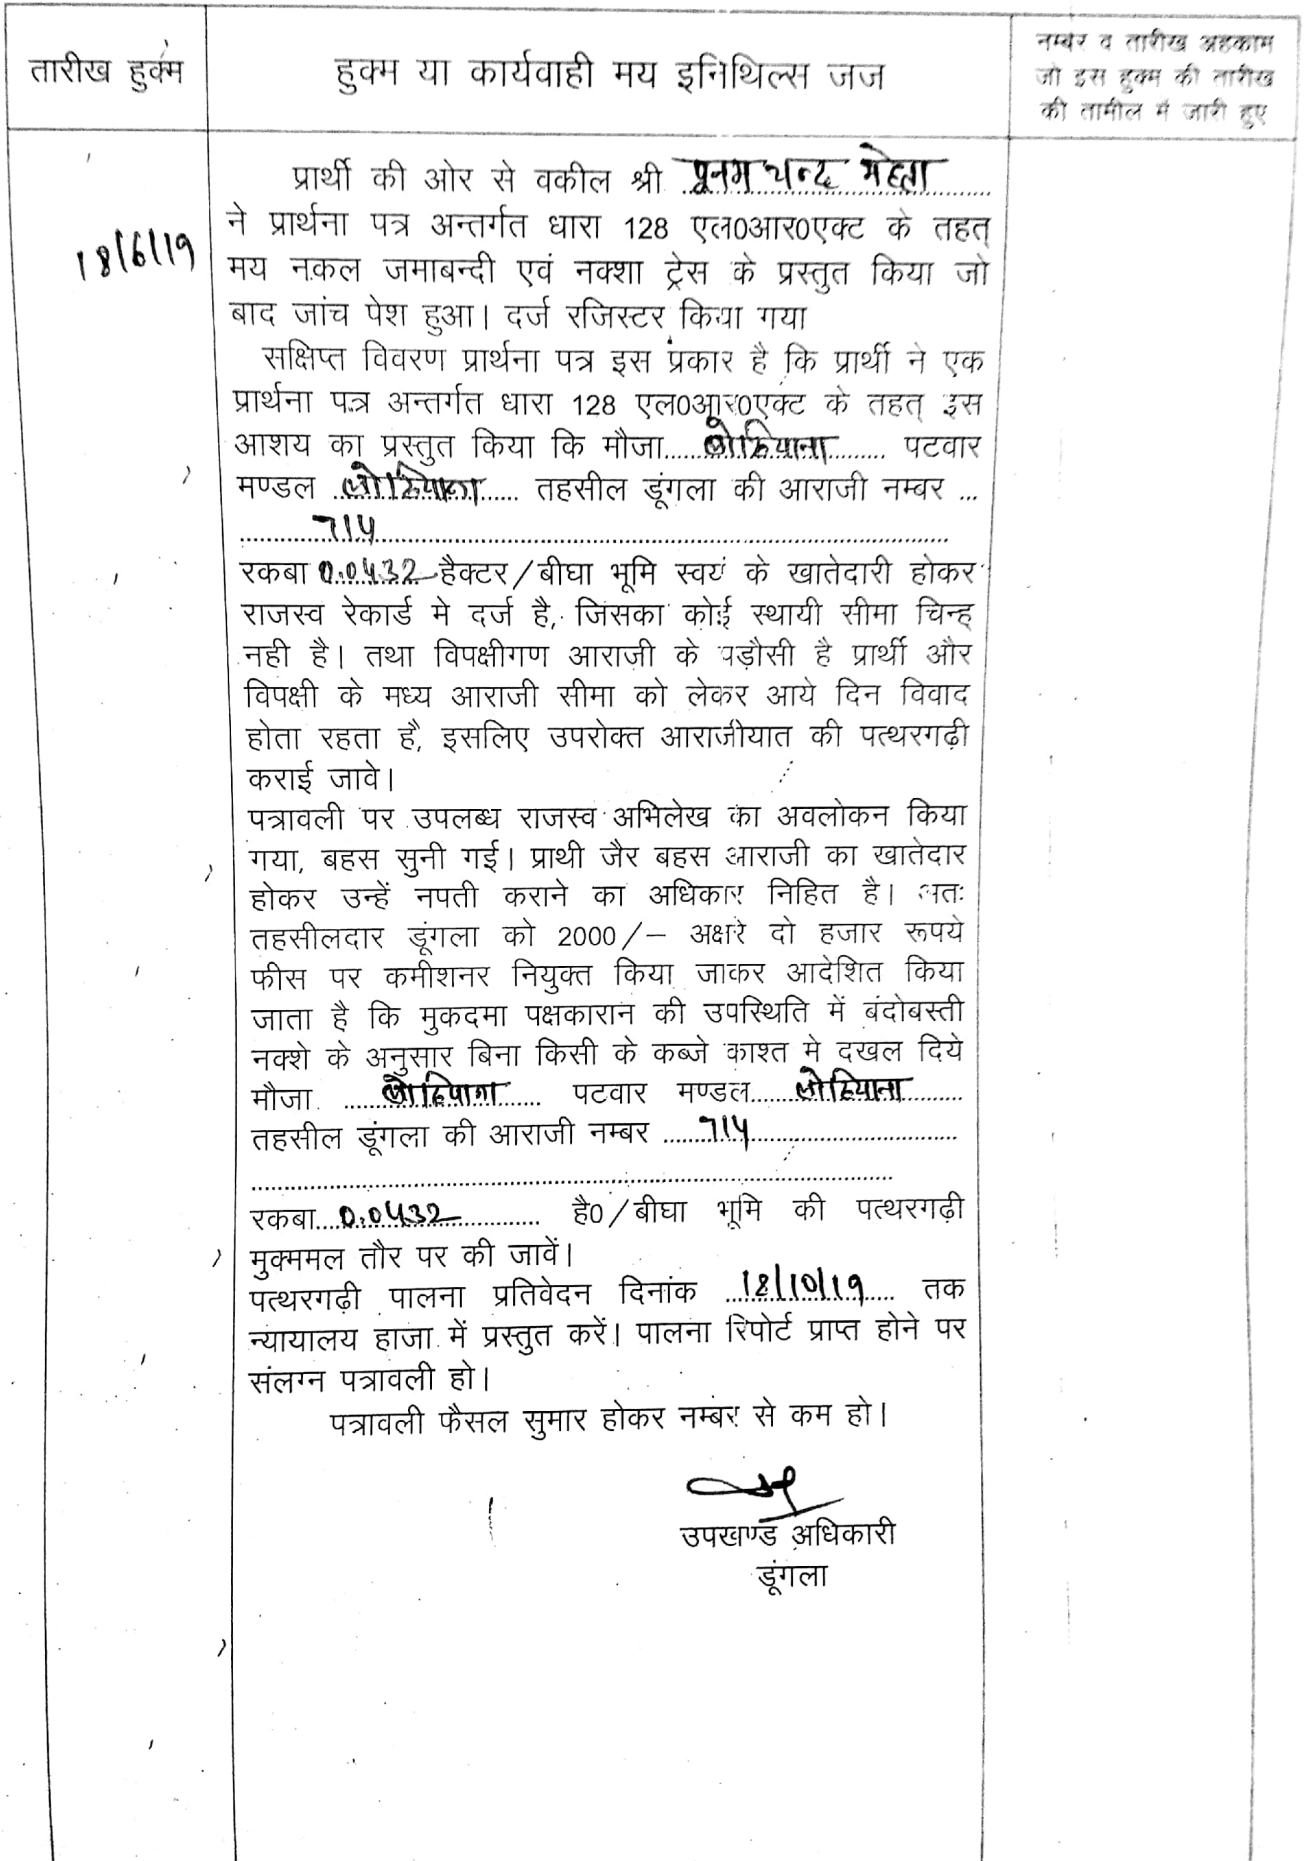 तारीख हुक्म
हुक्म या कार्यवाही मय इनिथिल्स जज
नम्बर व तारीख अहकाम
जो इस हुक्म की तारीख
की तामील में जारी हुए
18/6/19
प्रार्थी की ओर से वकील श्री पूनम चन्द मेहता
ने प्रार्थना पत्र अन्तर्गत धारा 128 एल0आर0एक्ट के तहत्
मय नकल जमाबन्दी एवं नक्शा ट्रेस के प्रस्तुत किया जो
बाद जांच पेश हुआ। दर्ज रजिस्टर किया गया
सक्षिप्त विवरण प्रार्थना पत्र इस प्रकार है कि प्रार्थी ने एक
प्रार्थना पत्र अन्तर्गत धारा 128 एल0आर0एक्ट के तहत् इस
आशय का प्रस्तुत किया कि मौजा.....लोठियाना.......... पटवार
मण्डल ..लोठियाना...... तहसील डूंगला की आराजी नम्बर ...
..........714..........
रकबा 0.0432 हैक्टर/बीघा भूमि स्वयं के खातेदारी होकर
राजस्व रेकार्ड मे दर्ज है, जिसका कोई स्थायी सीमा चिन्ह
नही है। तथा विपक्षीगण आराजी के पड़ौसी है प्रार्थी और
विपक्षी के मध्य आराजी सीमा को लेकर आये दिन विवाद
होता रहता है, इसलिए उपरोक्त आराजीयात की पत्थरगढ़ी
कराई जावे।
पत्रावली पर उपलब्ध राजस्व अभिलेख का अवलोकन किया
गया, बहस सुनी गई। प्राथी जैर बहस आराजी का खातेदार
होकर उन्हें नपती कराने का अधिकार निहित है। अतः
तहसीलदार डूंगला को 2000/– अक्षरे दो हजार रूपये
फीस पर कमीशनर नियुक्त किया जाकर आदेशित किया
जाता है कि मुकदमा पक्षकारान की उपस्थिति में बंदोबस्ती
नक्शे के अनुसार बिना किसी के कब्जे काश्त मे दखल दिये
मौजा .....लोठियाना..... पटवार मण्डल.....लोठियाना.....
तहसील डूंगला की आराजी नम्बर .....714..........
....................
रकबा....0.0432.......... है0/बीघा भूमि की पत्थरगढ़ी
मुक्ममल तौर पर की जावें।
पत्थरगढ़ी पालना प्रतिवेदन दिनांक ..18/10/19.... तक
न्यायालय हाजा में प्रस्तुत करें। पालना रिपोर्ट प्राप्त होने पर
संलग्न पत्रावली हो।
पत्रावली फैसल सुमार होकर नम्बर से कम हो।
उपखण्ड अधिकारी
डूंगला